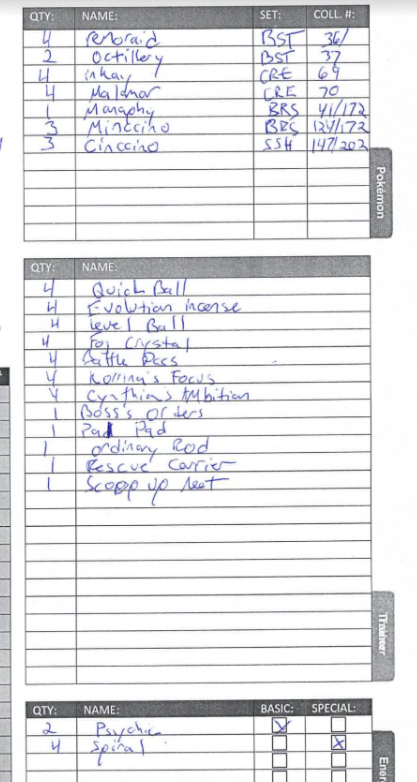 QTY: NAME: SET: COLL. #:
4 Remoraid BST 36/
2 Octillery BST 37
4 inkay CRE 69
4 Malamar CRE 70
1 Manaphy BRS 41/172
3 Minccino BRS 124/172
3 Cinccino SSH 147/202
Pokémon
QTY: NAME:
4 Quick Ball
4 Evolution incense
4 level Ball
4 Fog Crystal
4 Battle Pass
4 Korrina's Focus
4 Cynthia's Ambition
1 Boss's Orders
1 Pal Pad
1 ordinary Rod
1 Rescue Carrier
1 Scoop up Net
Trainer
QTY: NAME: BASIC: SPECIAL:
2 Psychic X
4 Spiral X
Ener